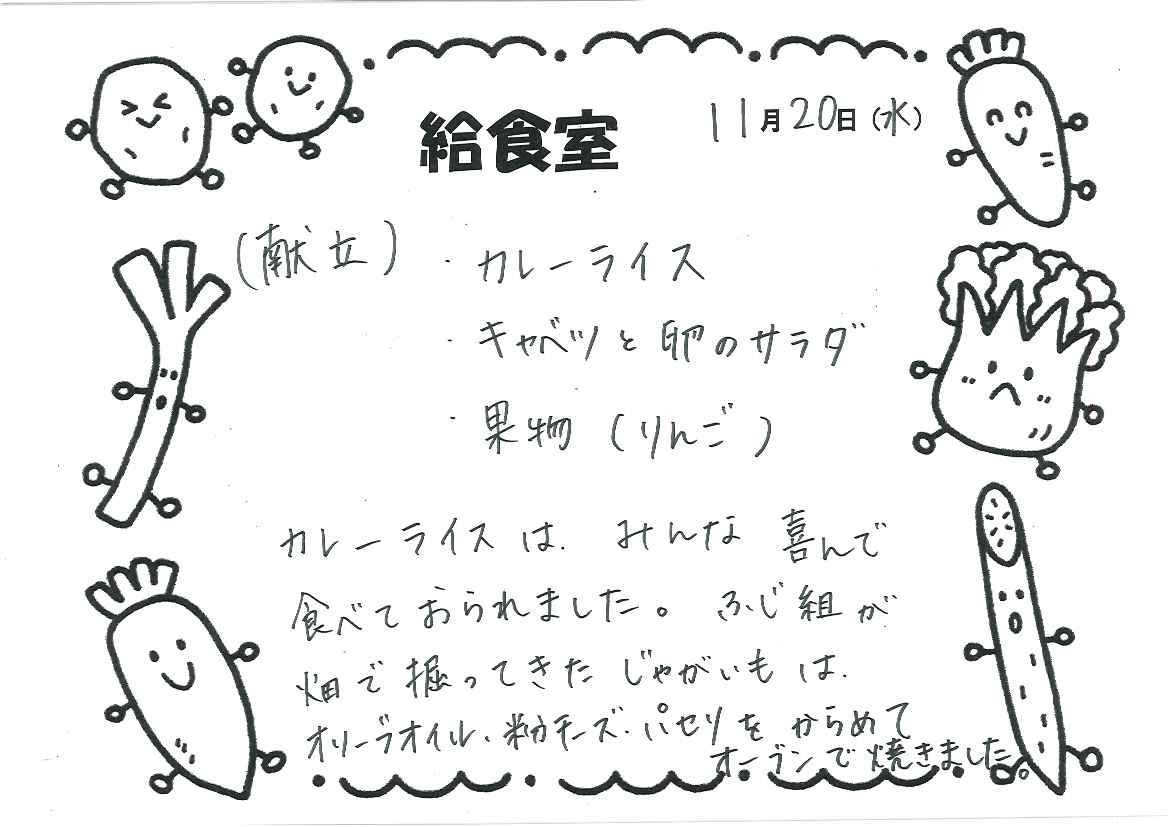 給食室
11月20日(水)
(献立)
・カレーライス
・キャベツと卵のサラダ
・果物(りんご)
カレーライスは、みんな喜んで
食べておられました。ふじ組が
畑で掘ってきたじゃがいもは、
オリーブオイル、粉チーズ、パセリをからめて
オーブンで焼きました。